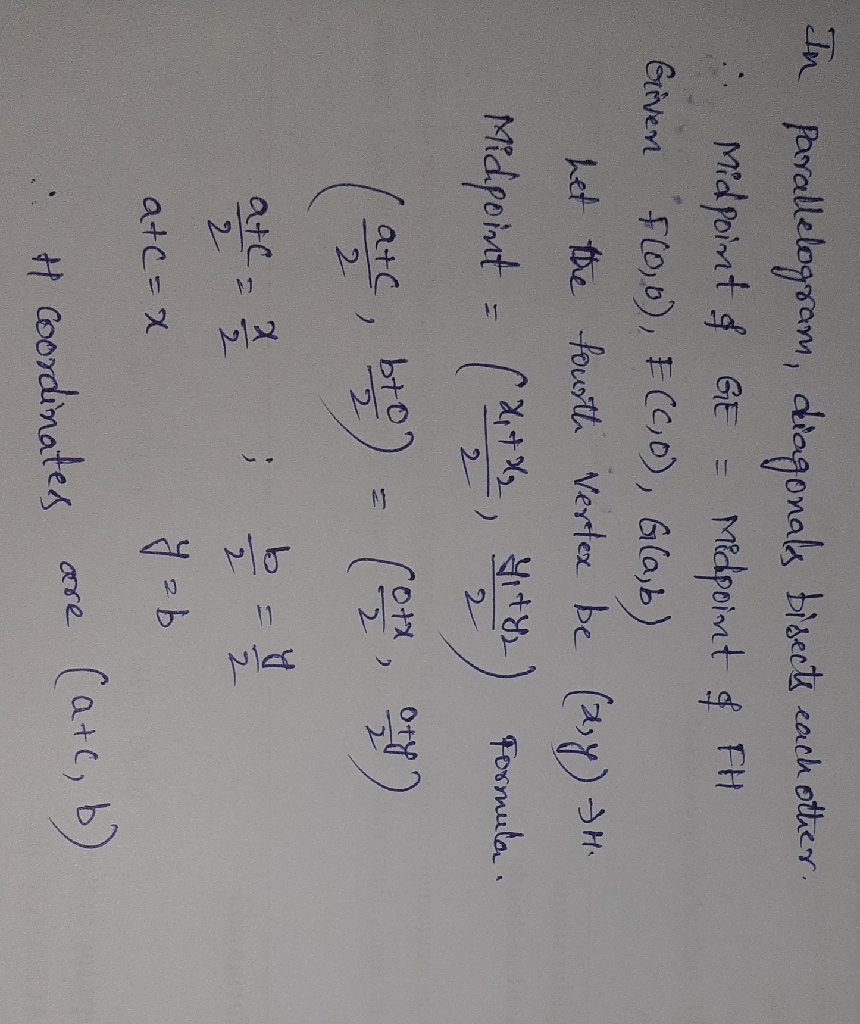 In parallelogram, diagonals bisects each other.
∴ Midpoint of GE = Midpoint of FH
Given F(0,0), E(C,0), G(a,b)
Let the fourth vertex be (x,y) → H.
Midpoint = ( x₁+x₂/2 , y₁+y₂/2 ) Formula.
( a+c/2 , b+0/2 ) = ( 0+x/2 , 0+y/2 )
a+c/2 = x/2 ; b/2 = y/2
a+c = x y = b
∴ H coordinates are (a+c, b)